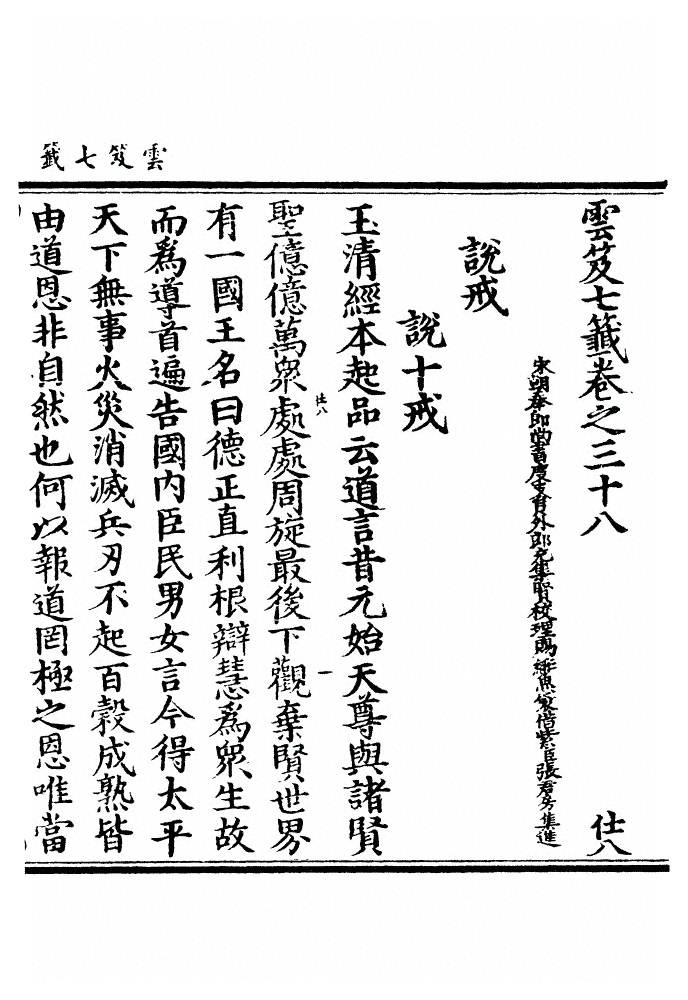 雲笈七籤
雲笈七籤卷之三十八 仕八
宋朝奉郎尚書度支員外郎充集賢校理賜緋魚袋借紫臣張君房集進
說戒
說十戒
玉清經本起品云道言昔元始天尊與諸賢
聖億億萬眾處處周旋最後下觀棄賢世界
仕八
一
有一國王名曰德正直利根辯慧為眾生故
而為導首遍告國內臣民男女言今得太平
天下無事火災消滅兵刃不起百穀成熟皆
由道恩非自然也何以報道罔極之恩唯當